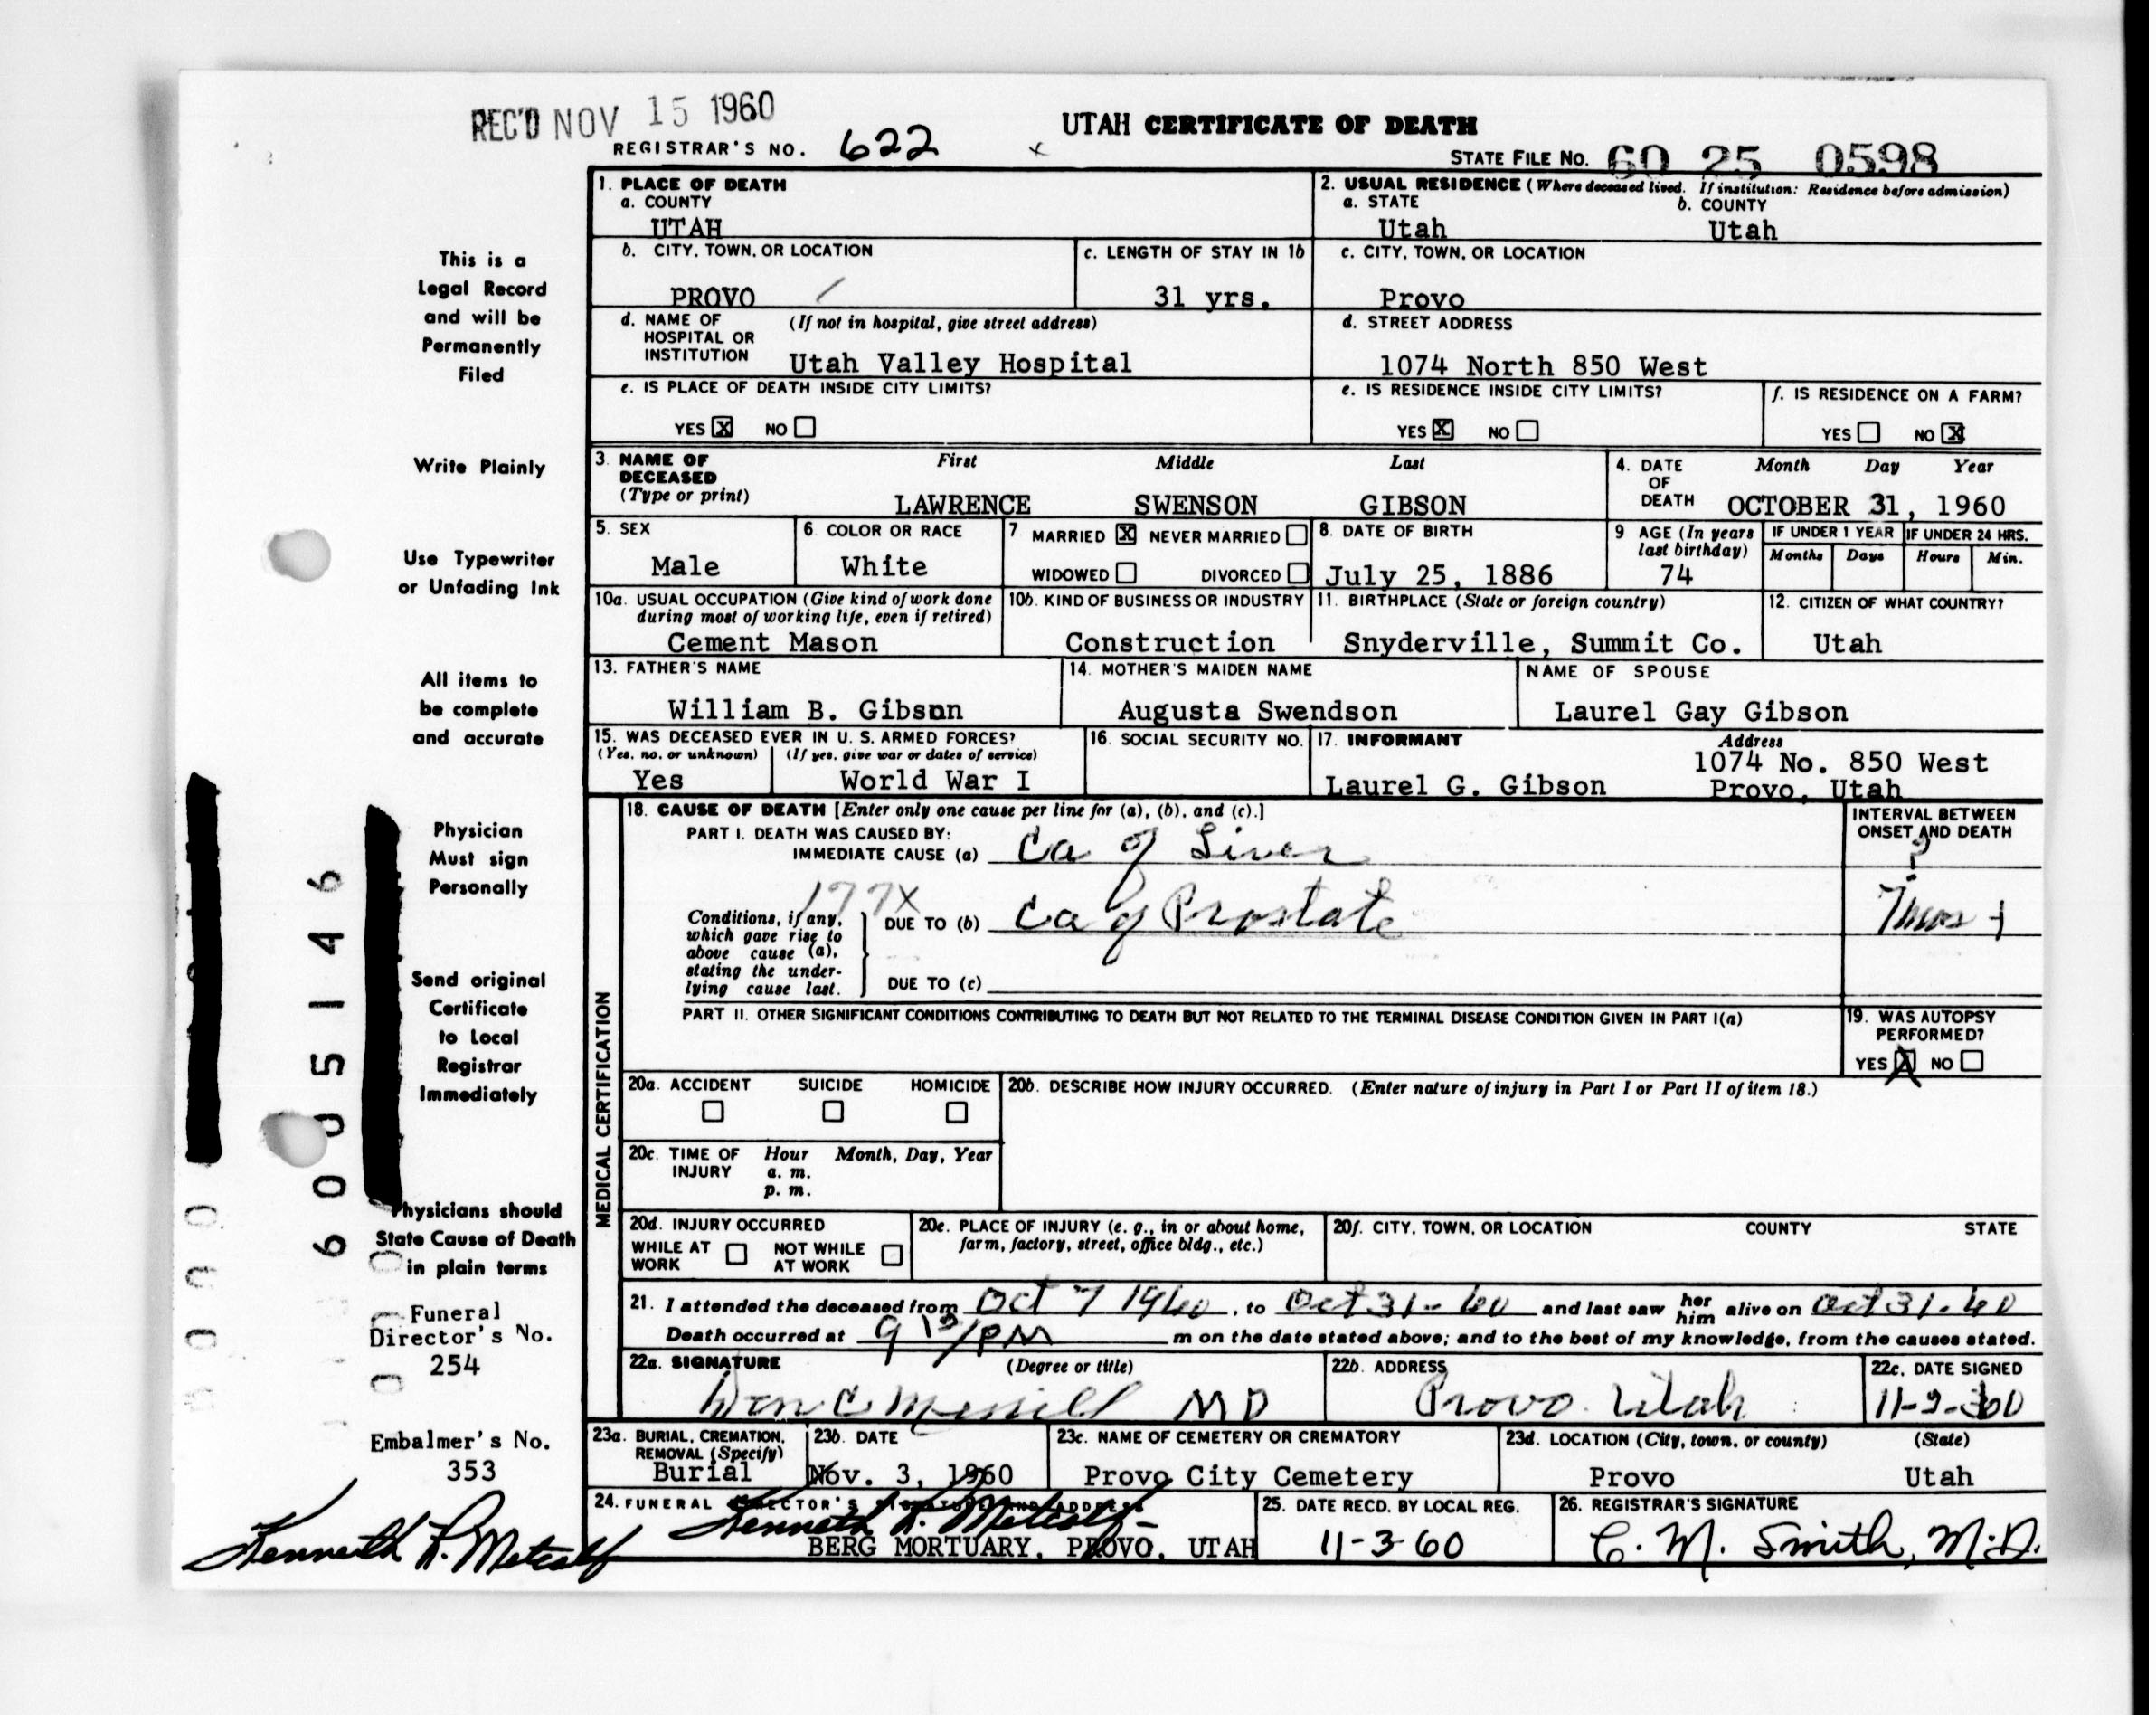 REC'D NOV 15 1960
REGISTRAR'S NO. 622
UTAH CERTIFICATE OF DEATH
STATE FILE NO. 60 25 0598
This is a
Legal Record
and will be
Permanently
Filed
Write Plainly
Use Typewriter
or Unfading Ink
All items to
be complete
and accurate
Physician
Must sign
Personally
Send original
Certificate
to Local
Registrar
Immediately
Physicians should
State Cause of Death
in plain terms
Funeral
Director's No.
254
Embalmer's No.
353
Kenneth L. Metcalf
1. PLACE OF DEATH
a. COUNTY
UTAH
2. USUAL RESIDENCE (Where deceased lived. If institution: Residence before admission)
a. STATE b. COUNTY
Utah Utah
b. CITY, TOWN, OR LOCATION
PROVO
c. LENGTH OF STAY IN 1b
31 yrs.
c. CITY, TOWN, OR LOCATION
Provo
d. NAME OF (If not in hospital, give street address)
HOSPITAL OR
INSTITUTION Utah Valley Hospital
d. STREET ADDRESS
1074 North 850 West
e. IS PLACE OF DEATH INSIDE CITY LIMITS?
YES X NO
e. IS RESIDENCE INSIDE CITY LIMITS?
YES X NO
f. IS RESIDENCE ON A FARM?
YES NO X
3. NAME OF First Middle Last
DECEASED
(Type or print) LAWRENCE SWENSON GIBSON
4. DATE Month Day Year
OF
DEATH OCTOBER 31, 1960
5. SEX
Male
6. COLOR OR RACE
White
7 MARRIED X NEVER MARRIED
WIDOWED DIVORCED
8. DATE OF BIRTH
July 25, 1886
9 AGE (In years
last birthday)
74
IF UNDER 1 YEAR IF UNDER 24 HRS.
Months Days Hours Min.
10a. USUAL OCCUPATION (Give kind of work done
during most of working life, even if retired)
Cement Mason
10b. KIND OF BUSINESS OR INDUSTRY
Construction
11. BIRTHPLACE (State or foreign country)
Snyderville, Summit Co.
12. CITIZEN OF WHAT COUNTRY?
Utah
13. FATHER'S NAME
William B. Gibson
14. MOTHER'S MAIDEN NAME
Augusta Swendson
NAME OF SPOUSE
Laurel Gay Gibson
15. WAS DECEASED EVER IN U. S. ARMED FORCES?
(Yes, no, or unknown) (If yes, give war or dates of service)
Yes World War I
16. SOCIAL SECURITY NO.
17. INFORMANT Address
1074 No. 850 West
Laurel G. Gibson Provo, Utah
MEDICAL CERTIFICATION
18. CAUSE OF DEATH [Enter only one cause per line for (a), (b), and (c).]
PART I. DEATH WAS CAUSED BY:
IMMEDIATE CAUSE (a) Ca of Liver
INTERVAL BETWEEN
ONSET AND DEATH
?
177X
Conditions, if any,
which gave rise to
above cause (a),
stating the under-
lying cause last.
DUE TO (b) Ca of Prostate
DUE TO (c)
PART II. OTHER SIGNIFICANT CONDITIONS CONTRIBUTING TO DEATH BUT NOT RELATED TO THE TERMINAL DISEASE CONDITION GIVEN IN PART I(a)
19. WAS AUTOPSY
PERFORMED?
YES X NO
20a. ACCIDENT SUICIDE HOMICIDE
20b. DESCRIBE HOW INJURY OCCURRED. (Enter nature of injury in Part I or Part II of item 18.)
20c. TIME OF Hour Month, Day, Year
INJURY a. m.
p. m.
20d. INJURY OCCURRED
WHILE AT NOT WHILE
WORK AT WORK
20e. PLACE OF INJURY (e. g., in or about home,
farm, factory, street, office bldg., etc.)
20f. CITY, TOWN, OR LOCATION COUNTY STATE
21. I attended the deceased from Oct 7 1960, to Oct 31-60 and last saw her him alive on Oct 31-60
Death occurred at 9 PM m on the date stated above; and to the best of my knowledge, from the causes stated.
22a. SIGNATURE (Degree or title)
Don C Merrill MD
22b. ADDRESS
Provo Utah
22c. DATE SIGNED
11-2-60
23a. BURIAL, CREMATION,
REMOVAL (Specify)
Burial
23b. DATE
Nov. 3, 1960
23c. NAME OF CEMETERY OR CREMATORY
Provo City Cemetery
23d. LOCATION (City, town, or county) (State)
Provo Utah
24. FUNERAL DIRECTOR'S SIGNATURE AND ADDRESS
Kenneth L. Metcalf
BERG MORTUARY, PROVO, UTAH
25. DATE RECD. BY LOCAL REG.
11-3-60
26. REGISTRAR'S SIGNATURE
C. M. Smith, M.D.